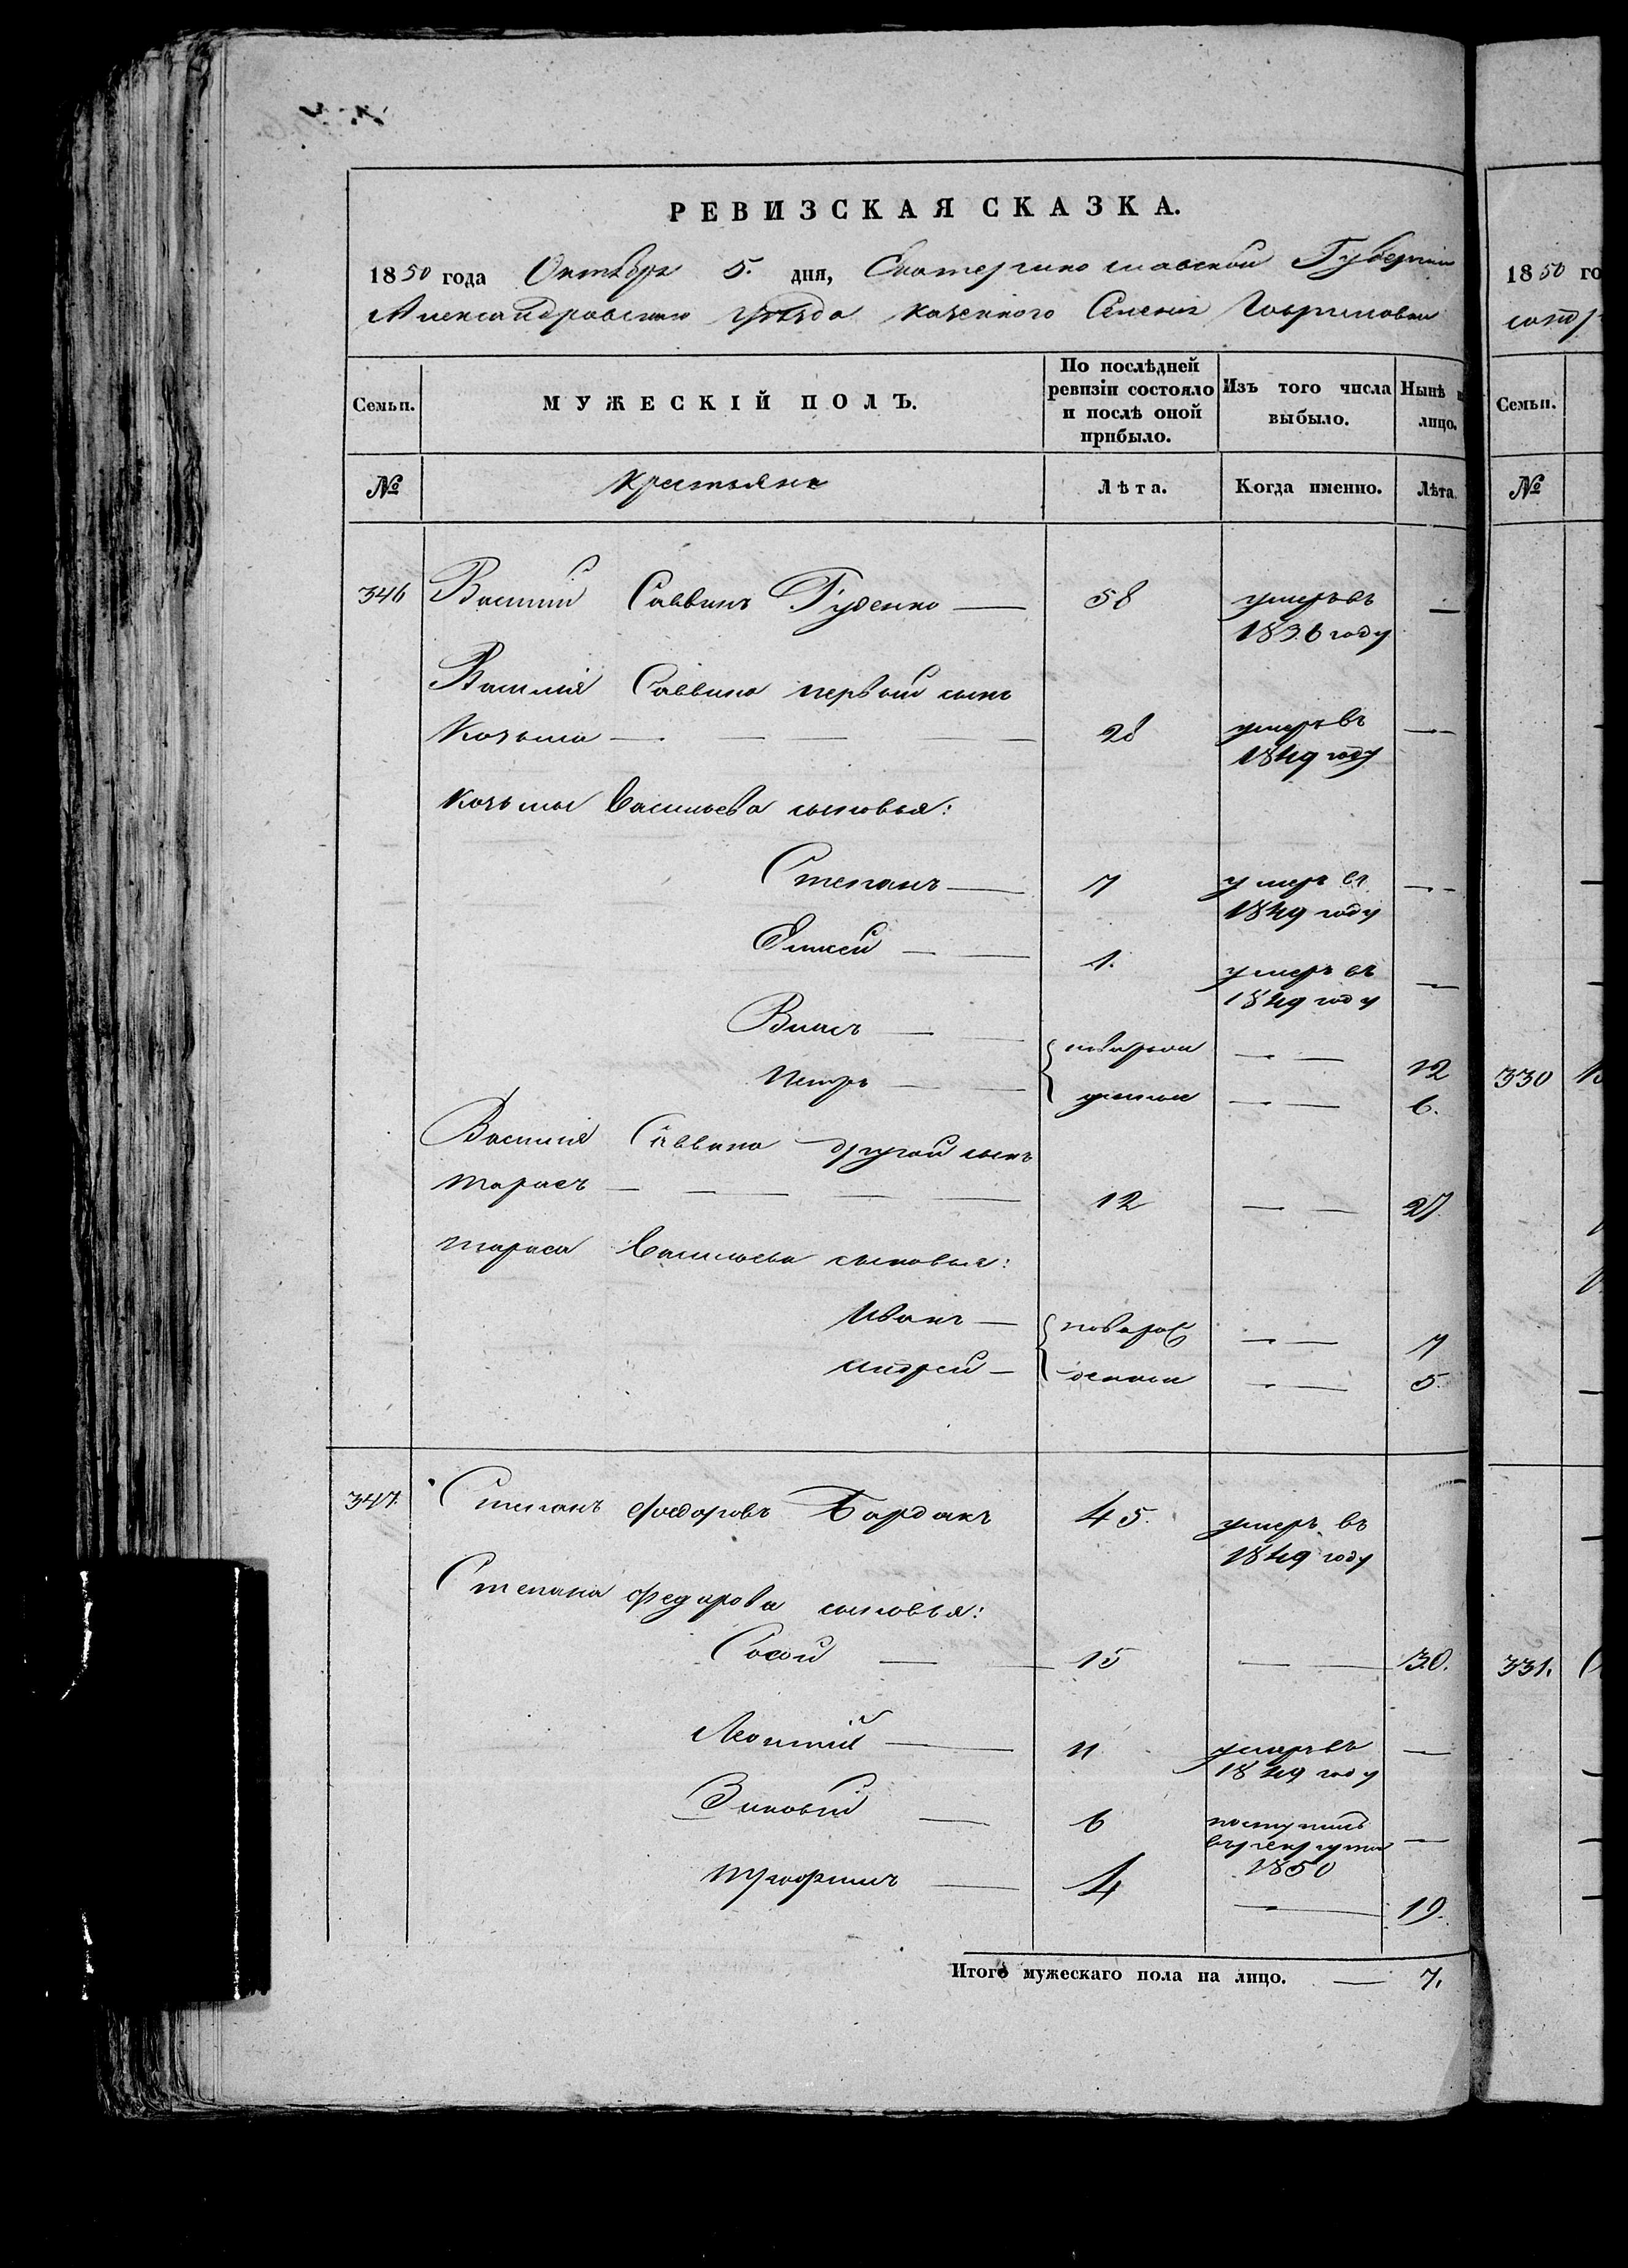 РЕВИЗСКАЯ СКАЗКА.
1850 года Октября 5. дня, Екатеринославской Губернии
Александровского уѣзда казенного Селенія Гавриловки
Семьи. МУЖЕСКІЙ ПОЛЪ. По послѣдней ревизіи состояло и послѣ оной прибыло. Изъ того числа выбыло. Нынѣ н лицо.
№ Крестьяне Лѣта. Когда именно. Лѣта.
346 Василий Саввинъ Руденко — 58 умеръ въ —
1836 году
Василія Саввина первый сынъ
Козьма — — — — 28 умеръ въ —
1849 году
Козьмы Васильева сыновья:
Степанъ — 7 умеръ въ —
1849 году
Елисей — — 1. умеръ въ —
1849 году
Власъ — — новорож — — 12
Петръ — — денные — — 6.
Василія Саввина другой сынъ
Тарасъ — — — — — 12 — — 27.
Тараса Васильева сыновья:
Иванъ — новорож — — 7
Андрей — денные — — 5.
347. Степанъ Федоровъ Бардакъ 45. умеръ въ
1849 году
Степана Федорова сыновья:
Сосой — — 15 — — 30.
Леонтий — 11 умеръ въ —
1849 году
Зиновий — 6 поступилъ
въ рекруты —
1850
Трофимъ — 4 — 19.
Итого мужескаго пола на лицо. — 7.
1850 го
Семьи.
№
330
331.